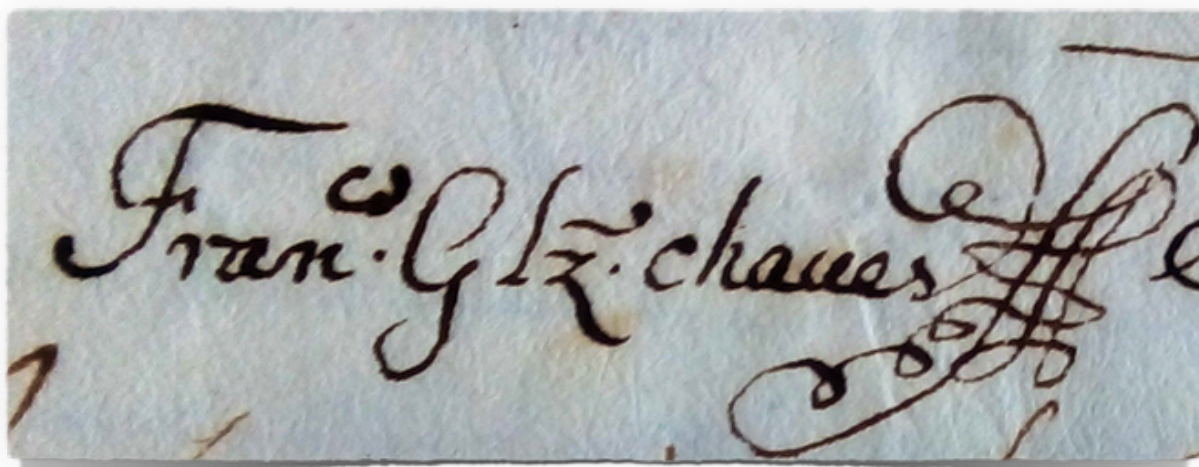 Franᶜᵒ. Glz̃. chaues